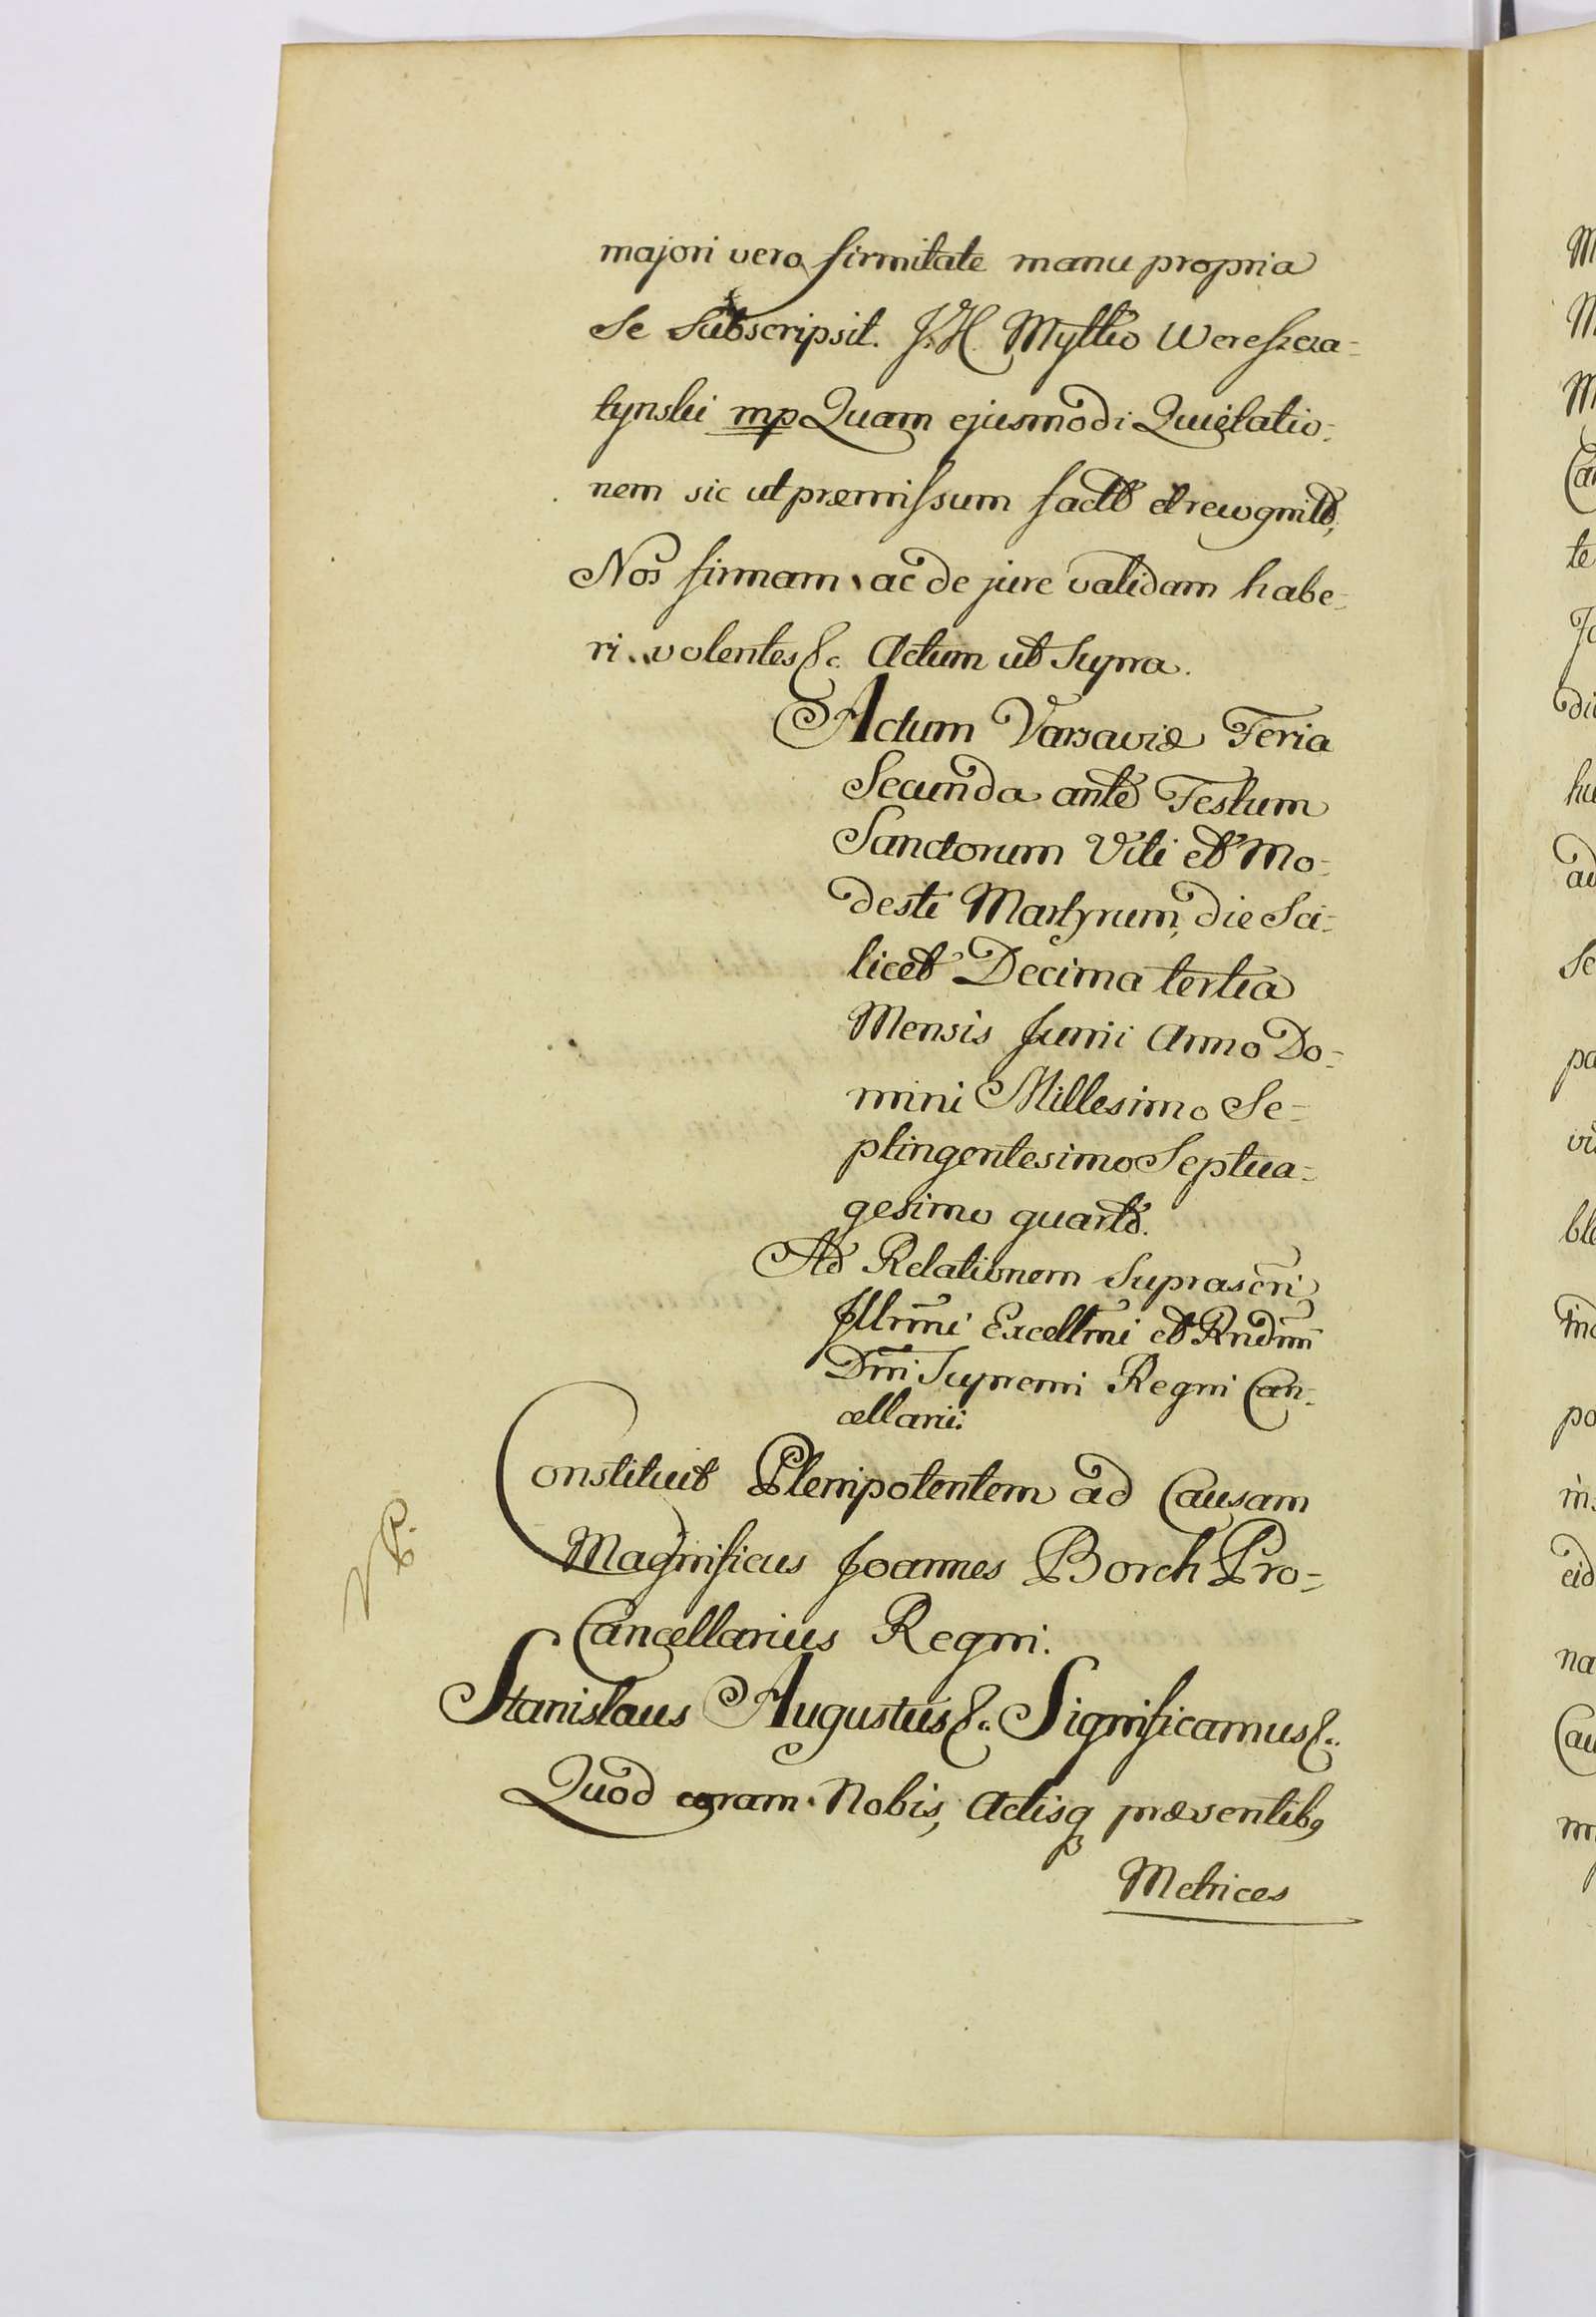 majori vero firmitate manu propria
se Subscripsit. J. H. Mytko Wereszcza=
tynski mp Quam ejusmodi Quietatio=
nem sic ut præmissum facto et recognito,
Nos firmam ac de jure validam habe=
ri volentes &c. Actum ut Supra.
Actum Varsaviæ Feria
Secunda ante Festum
Sanctorum Viti et Mo=
desti Martyrum, die Sci=
licet Decima tertia
Mensis Junii Anno Do=
mini Millesimo Se=
ptingentesimo Septua=
gesimo quarto.
Ad Relationem Suprascri
Illrmi Excellmi et Rndmi
Dni Supremi Regni Can=
cellarii.
Constituit Plenipotentem ad Causam
Magnificus Joannes Borch Pro=
Cancellarius Regni.
Stanislaus Augustus &c. Significamus &c.
Quod coram Nobis, Actisq præsentibq
Metrices